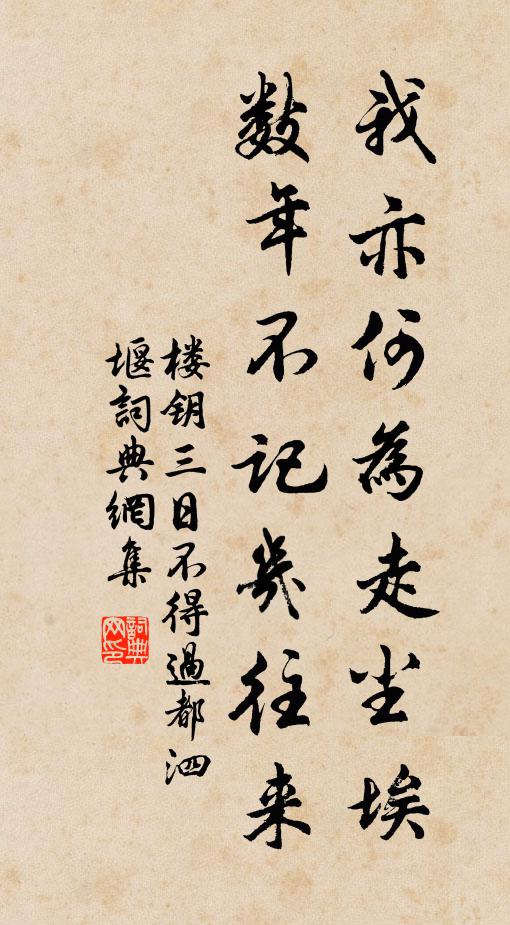 我亦何為走尘埃
数年不记幾往来
楼钥三日不得過都泗
堰詞典網集
詞典
网印